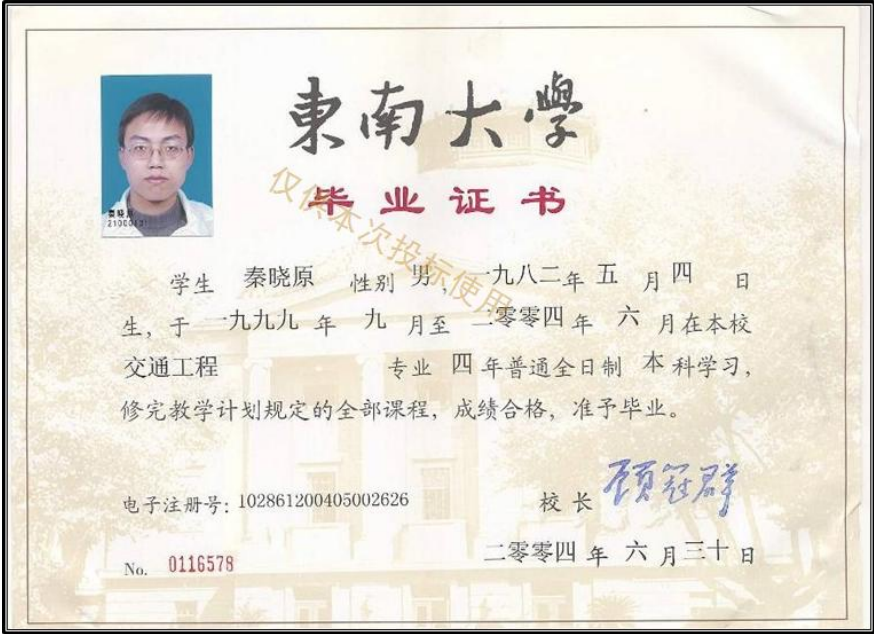 東南大學
毕业证书
仅供本次投标使用
学生 秦晓原 性别 男, 一九八二年 五 月 四 日
生, 于 一九九九 年 九 月至 二零零四 年 六 月在本校
交通工程 专业 四 年普通全日制 本 科学习,
修完教学计划规定的全部课程, 成绩合格, 准予毕业。
电子注册号: 102861200405002626
校长 顾冠群
No. 0116578
二零零四 年 六 月 三十 日